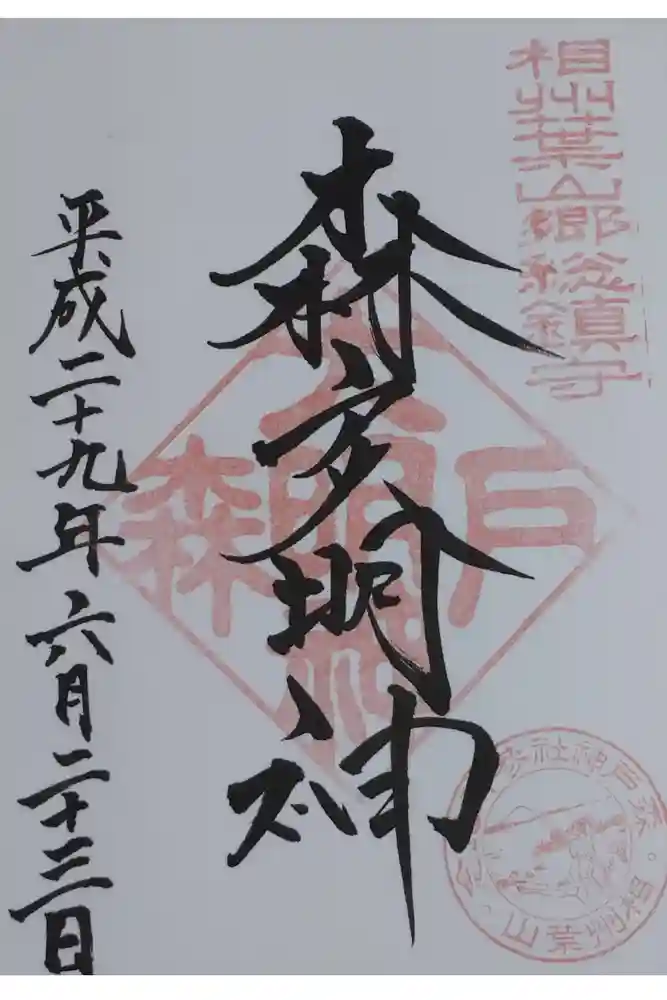 相州葉山郷総鎮守
森戸大明神
平成二十九年六月二十三日
森戸大明神
森戸神社
相州葉山